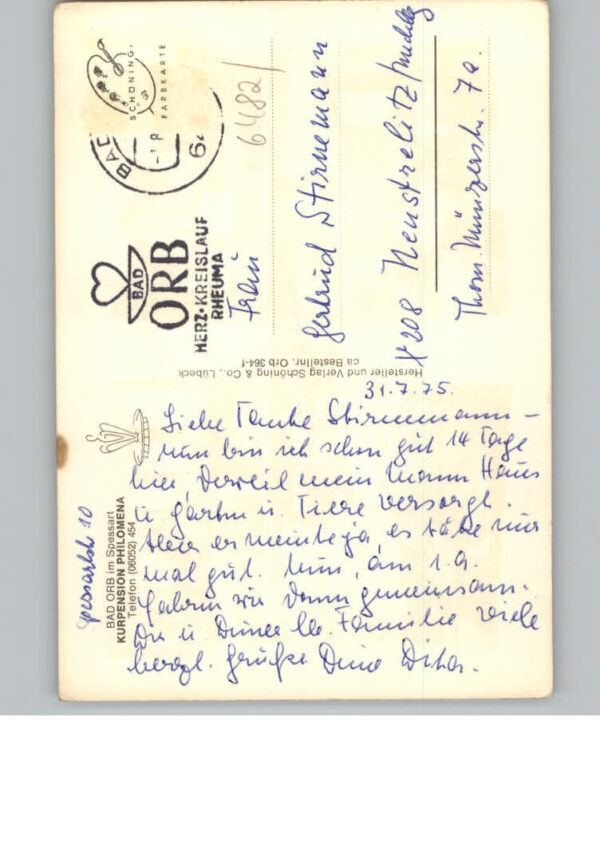 Spessartstr 10
BAD ORB im Spessart
KURPENSION PHILOMENA
Telefon (06052) 454
31.7.75.
Liebe Tante Stirnemann –
nun bin ich schon gut 14 Tage
hier, derweil mein Mann Haus
u. Garten u. Tiere versorgt.
Aber er meinte ja, es täte mir
mal gut. Nun, am 1.9.
fahren wir dann gemeinsam.
Dir u. Deiner lb. Familie viele
herzl. Grüße Deine
Hersteller und Verlag Schöning & Co., Lübeck
ca Bestellnr. Orb 364-f
BAD
ORB
HERZ·KREISLAUF
RHEUMA
BAD
SCHÖNING·
FARBKARTE
6482/
Frau
Gertrud Stirnemann
X 208 Neustrelitz/Mecklbg
Thom. Münzerstr. 7a.